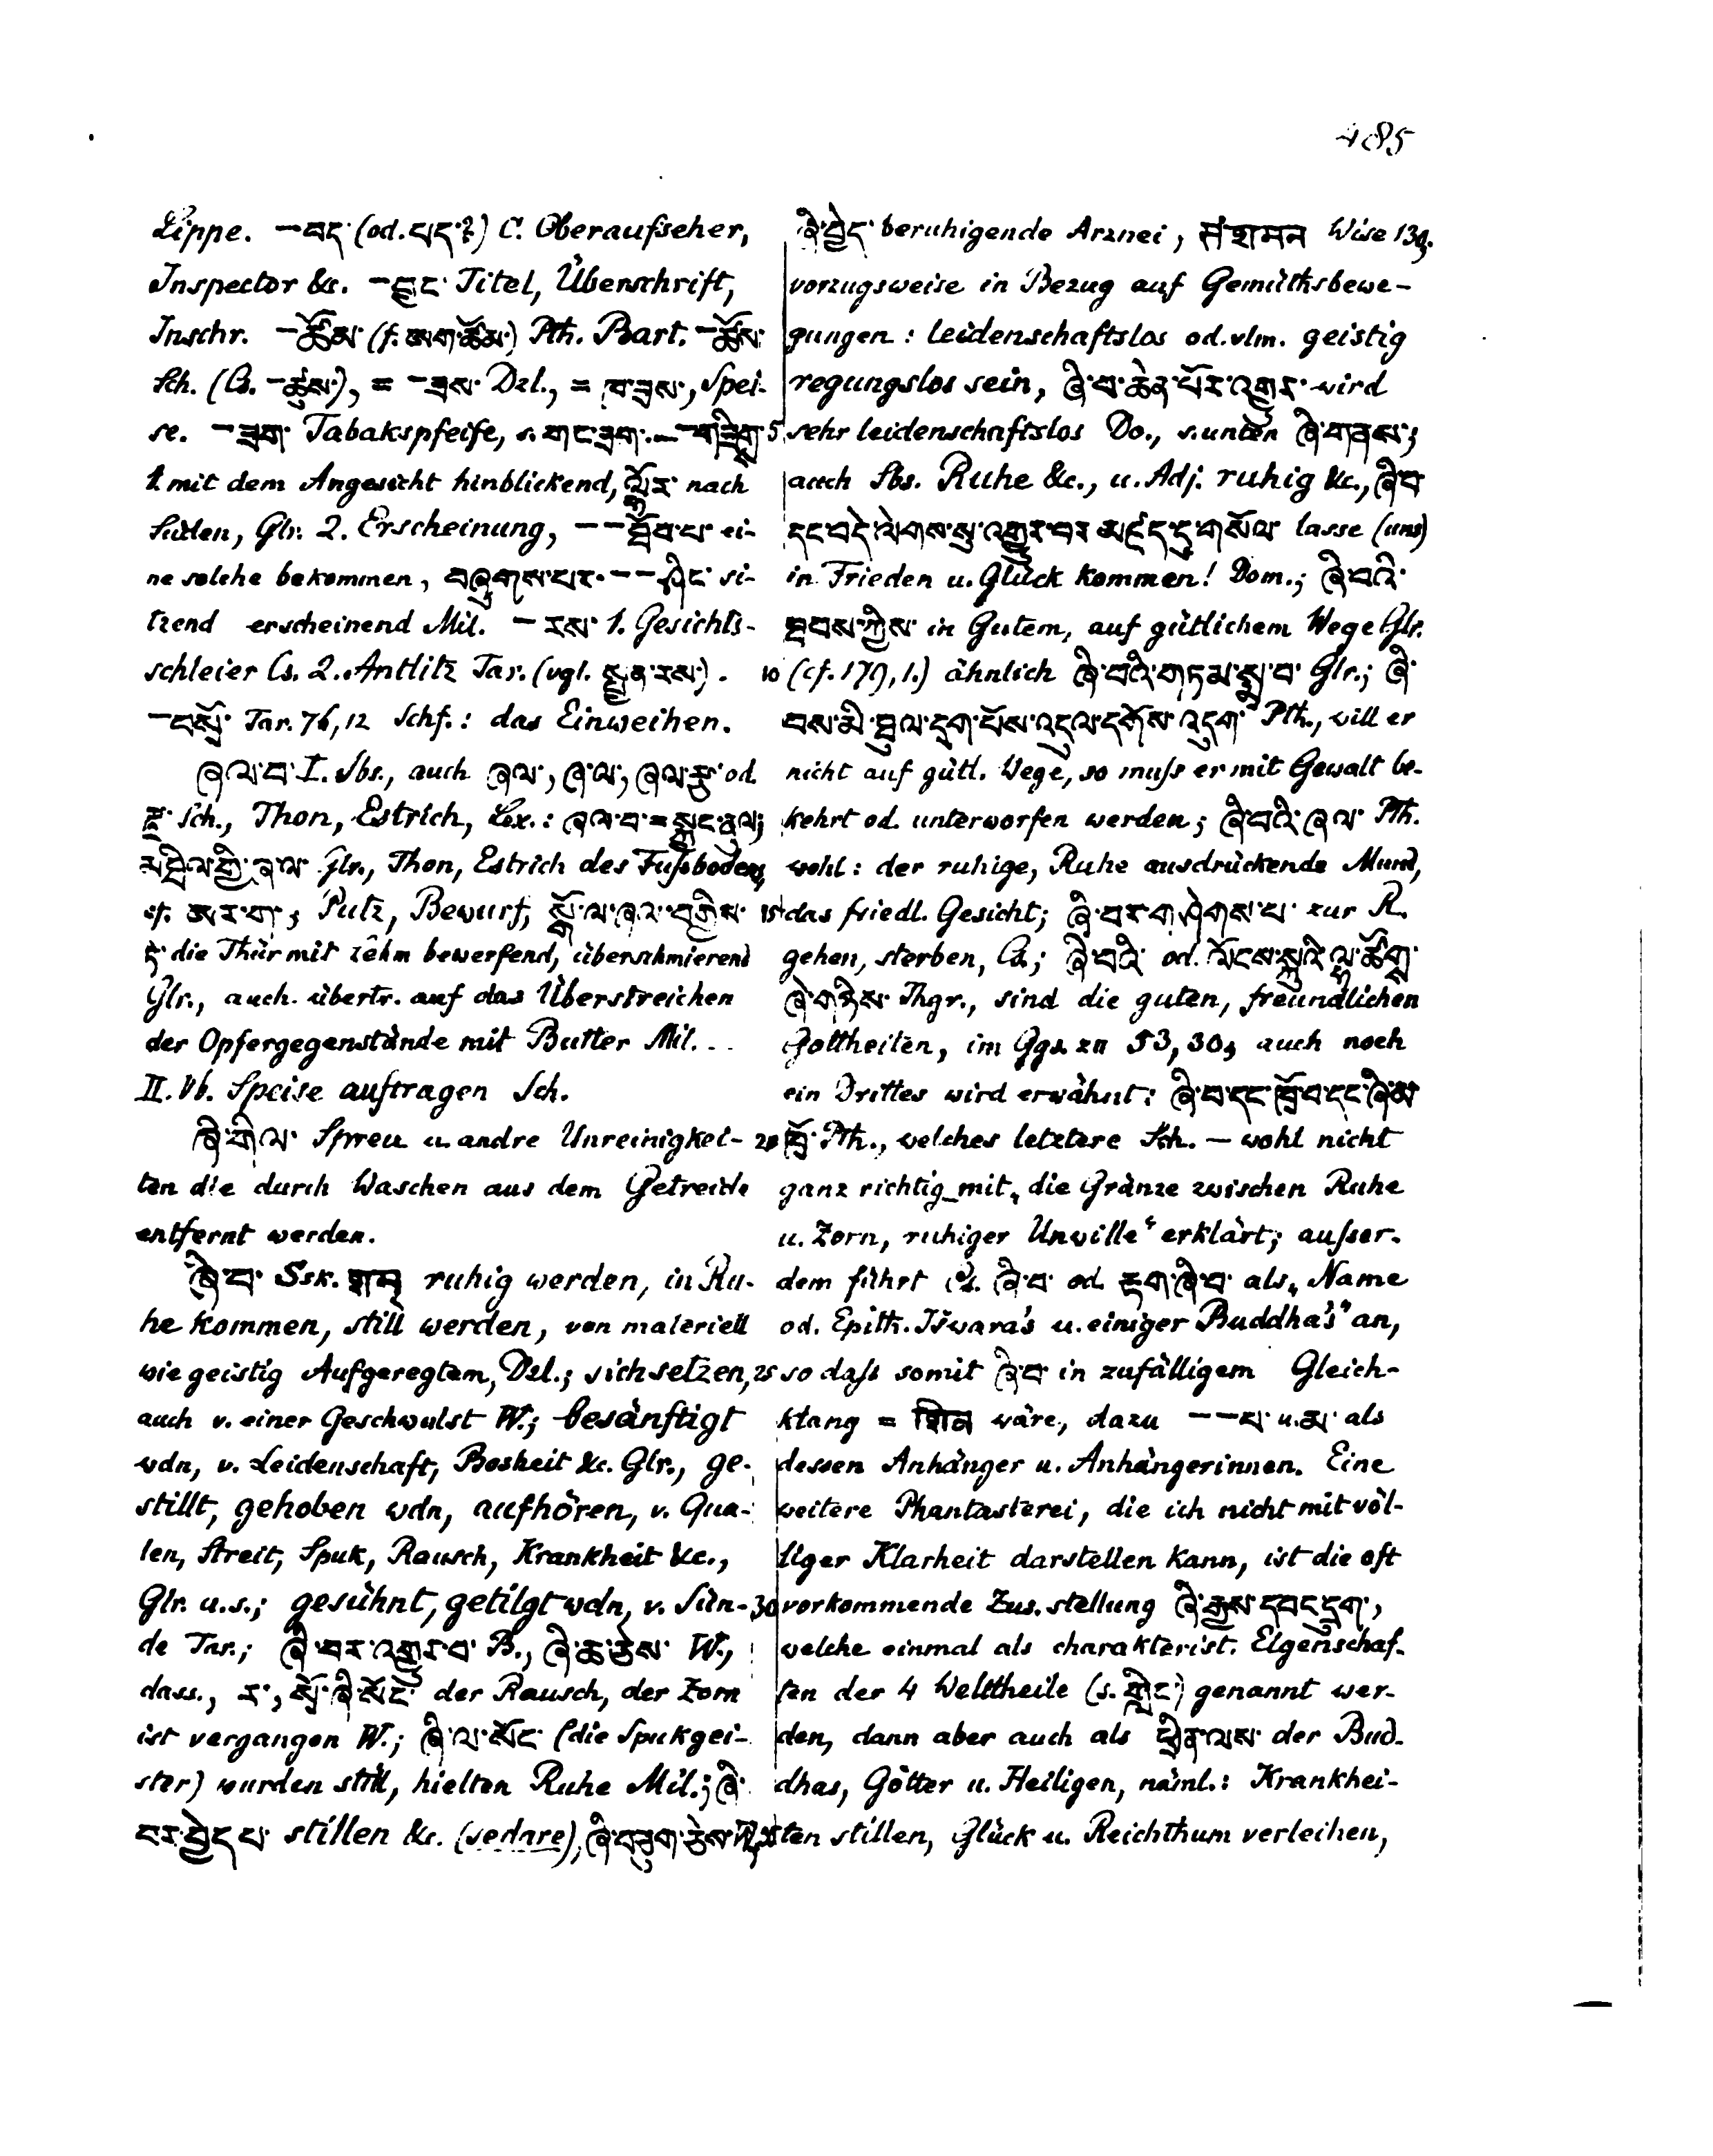 485
Lippe. –བད་ (od. པད་?) C. Oberaufseher,
Inspector &c. –བྱང་ Titel, Überschrift,
Inschr. –ཚོམ་ (f. མག་ཚོམ་) Pth. Bart. –ཚོས་
Sch. (Cs. –ཚུས་), = –ཟས་ Dzl., = ཁ་ཟས་, Spei-
se. –ཟག་ Tabakspfeife, s. གང་ཟག་. – –གཟིགས་
1. mit dem Angesicht hinblickend, ལྷོར་ nach
Süden, Glr. 2. Erscheinung, – –ཐོབ་པ་ ei-
ne solche bekommen, བཞུགས་པར་ – –ཤིང་ si-
tzend erscheinend Mil. –རས་ 1. Gesichts-
schleier Cs. 2. Antlitz Tar. (vgl. སྤྱན་རས་).
–བསྲོ་ Tar. 76,12 Schf.: das Einweihen.
ཞལ་བ་ I. Sbs., auch ཞལ་, ཞ་ལ་, ཞལ་ od.
Sch., Thon, Estrich, Lex.: ཞལ་བ་ =
གྱི་ཞལ་ Glr., Thon, Estrich des Fußbodens,
cf. ཨར་ག་; Putz, Bewurf, སྒོ་ལ་ཞལ་བགྱིས་
ཏེ་ die Thür mit Lehm bewerfend, überschmierend
Glr., auch übertr. auf das Überstreichen
der Opfergegenstände mit Butter Mil. –
II. Vb. Speise auftragen Sch.
ཞི་གིལ་ Spreu u. andre Unreinigkei-
ten die durch Waschen aus dem Getreide
entfernt werden.
ཞི་བ་ Ssk. शम् ruhig werden, in Ru-
he kommen, still werden, von materiell
wie geistig Aufgeregtem, Dzl.; sich setzen,
auch v. einer Geschwulst W.; besänftigt
wdn, v. Leidenschaft, Bosheit &c. Glr., ge-
stillt, gehoben wdn, aufhören, v. Qua-
len, Streit, Spuk, Rausch, Krankheit &c.,
Glr. u. s.; gesühnt, getilgt wdn, v. Sün-
de Tar.; ཞི་བར་འགྱུར་བ་ B., ཞི་ཆ་ཅེས་ W.,
dass., ར་, སྲོ་ཞི་སོང་ der Rausch, der Zorn
ist vergangen W.; ཞི་ལ་སོང་ (die Spukgei-
ster) wurden still, hielten Ruhe Mil.; ཞི་
བར་བྱེད་པ་ stillen &c. (sedare), ཞི་བཅུག་ཅེས་ W.,
ཞི་བྱེད་ beruhigende Arznei, संशमन Wise 130,
vorzugsweise in Bezug auf Gemüthsbewe-
gungen: leidenschaftslos od. vlm. geistig
regungslos sein, ཞི་བ་ཆེན་པོར་འགྱུར་ wird
5 sehr leidenschaftslos Do., s. unten ཞི་གནས་;
auch Sbs. Ruhe &c., u. Adj. ruhig &c., ཞི་བ་
དང་བདེ་ལེགས་སུ་འགྱུར་བར་མཛད་དུ་གསོལ་ lasse (uns)
in Frieden u. Glück kommen! Dom.; ཞི་བའི་
ཐབས་ཀྱིས་ in Gutem, auf gütlichem Wege Glr.
10 (cf. 179, 1.) ähnlich ཞི་བའི་གཏམ་སྨྲ་བ་ Glr.; ཞི་
བས་མི་ཐུལ་དྲག་པོས་འདུལ་དགོས་འདུག་ Pth., will er
nicht auf gütl. Wege, so muß er mit Gewalt be-
kehrt od. unterworfen werden; ཞི་བའི་ཞལ་ Pth.
wohl: der ruhige, Ruhe ausdrückende Mund,
15 das friedl. Gesicht; ཞི་བར་གཤེགས་པ་ zur R.
gehen, sterben, Cs.; ཞི་བའི་ od. ལོངས་སྐུའི་ལྷ་ཚོགས་
ཞེ་གཉིས་ Thgr., sind die guten, freundlichen
Gottheiten, im Ggs. zu 53,30, auch noch
ein Drittes wird erwähnt: ཞི་བ་དང་ཁྲོ་བ་དང་ཞི་མ་
20 ཁྲོ་ Pth., welches letztere Sch. – wohl nicht
ganz richtig – mit „die Gränze zwischen Ruhe
u. Zorn, ruhiger Unwille“ erklärt; außer-
dem führt Cs. ཞི་བ་ od. རྟག་ཞི་བ་ als „Name
od. Epith. Iśwara's u. einiger Buddha's“ an,
25 so daß somit ཞི་བ་ in zufälligem Gleich-
klang = शिव wäre, dazu – –པ་ u. མ་ als
dessen Anhänger u. Anhängerinnen. Eine
weitere Phantasterei, die ich nicht mit völ-
liger Klarheit darstellen kann, ist die oft
30 vorkommende Zus.stellung ཞི་རྒྱས་དབང་དྲག་,
welche einmal als charakterist. Eigenschaf-
ten der 4 Welttheile (s. གླིང་) genannt wer-
den, dann aber auch als ཕྲིན་ལས་ der Bud-
dhas, Götter u. Heiligen, näml.: Krankhei-
ten stillen, Glück u. Reichthum verleihen,